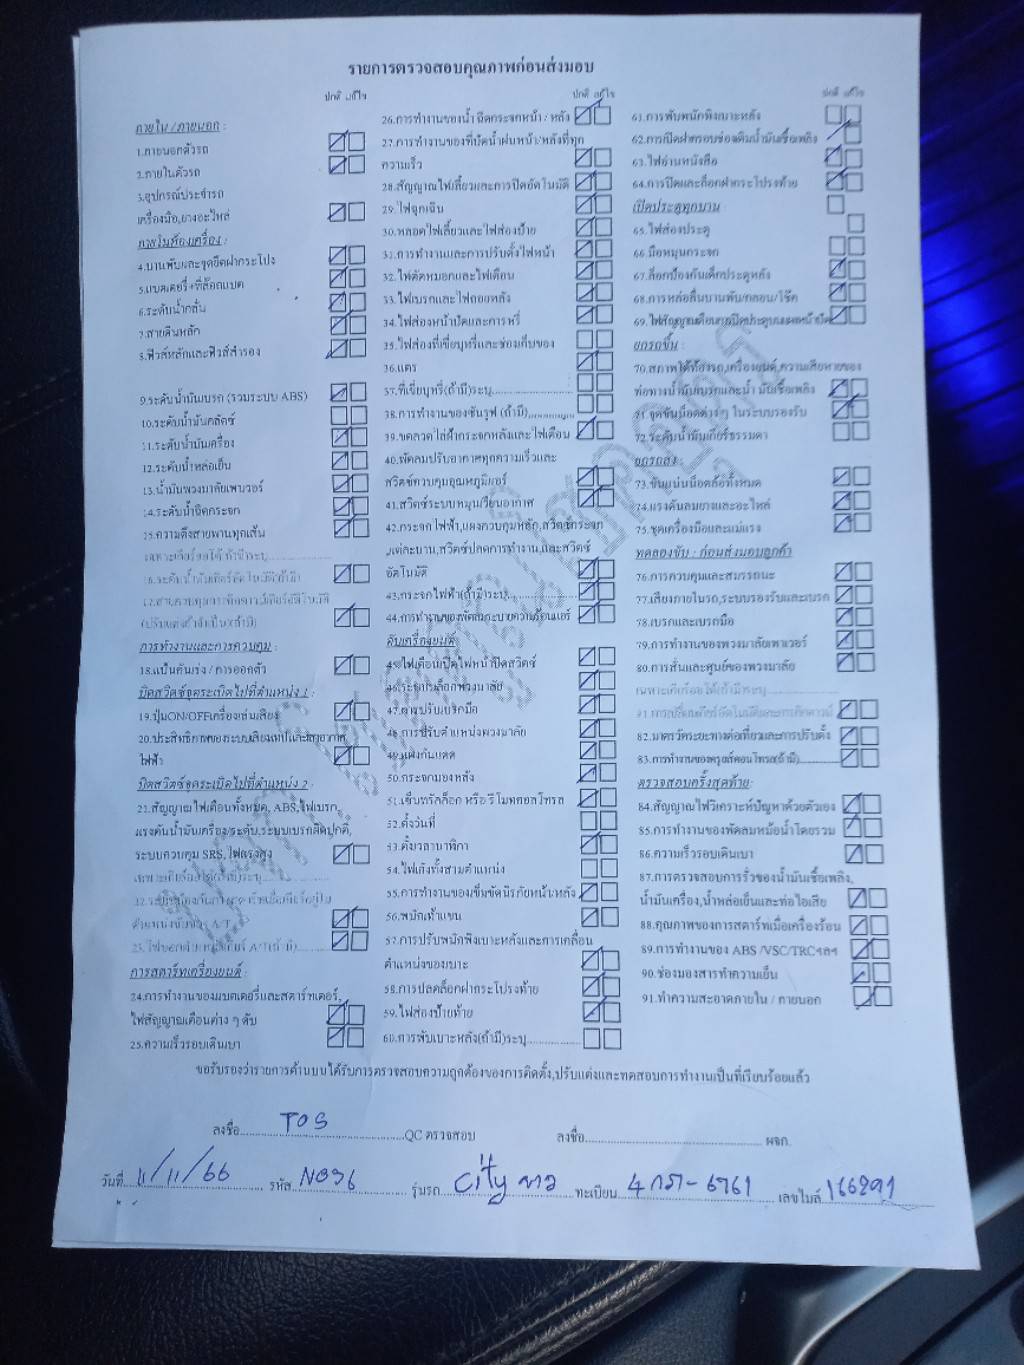 รายการตรวจสอบคุณภาพก่อนส่งมอบ
ปกติ แก้ไข
ภายใน / ภายนอก :
1.ภายนอกตัวรถ
2.ภายในตัวรถ
3.อุปกรณ์ประจำรถ
เครื่องมือ,ยางอะไหล่
ภายในห้องเครื่อง :
4.บานพับและจุดยึดฝากระโปรง
5.แบตเตอรี่+ที่ล็อกแบต
6.ระดับน้ำกลั่น
7.สายดินหลัก
8.ฟิวส์หลักและฟิวส์สำรอง
9.ระดับน้ำมันเบรก (รวมระบบ ABS)
10.ระดับน้ำมันคลัตช์
11.ระดับน้ำมันเครื่อง
12.ระดับน้ำหล่อเย็น
13.น้ำมันพวงมาลัยเพาเวอร์
14.ระดับน้ำฉีดกระจก
15.ความตึงสายพานทุกเส้น
การทำงานและการควบคุม :
18.แป้นคันเร่ง / การออกตัว
บิดสวิตซ์จุดระเบิดไปที่ตำแหน่ง 1 :
19.ปุ่มON/OFFเครื่องเล่นเสียง
ไฟฟ้า
บิดสวิตซ์จุดระเบิดไปที่ตำแหน่ง 2 :
21.สัญญาณไฟเตือนทั้งหมด, ABS,ไฟเบรก,
แรงดันน้ำมันเครื่อง/ระดับ,ระบบเบรกผิดปกติ,
ระบบควบคุม SRS, ไฟแรงสูง
การสตาร์ทเครื่องยนต์ :
24.การทำงานของแบตเตอรี่และสตาร์ทเตอร์,
ไฟสัญญาณเตือนต่าง ๆ ดับ
25.ความเร็วรอบเดินเบา
ปกติ แก้ไข
26.การทำงานของน้ำ ฉีดกระจกหน้า / หลัง
27.การทำงานของที่ปัดน้ำฝนหน้า/หลังที่ทุก
ความเร็ว
28.สัญญาณไฟเลี้ยวและการปิดอัตโนมัติ
29.ไฟฉุกเฉิน
30.หลอดไฟเลี้ยวและไฟส่องป้าย
31.การทำงานและการปรับตั้งไฟหน้า
32.ไฟตัดหมอกและไฟเตือน
33.ไฟเบรกและไฟถอยหลัง
34.ไฟส่องหน้าปัดและการหรี่
35.ไฟส่องที่เขี่ยบุหรี่และช่องเก็บของ
36.แตร
37.ที่เขี่ยบุหรี่(ถ้ามี)ระบุ....................
38.การทำงานของซันรูฟ (ถ้ามี)............
39.ขดลวดไล่ฝ้ากระจกหลังและไฟเตือน
40.พัดลมปรับอากาศทุกความเร็วและ
สวิตช์ควบคุมอุณหภูมิแอร์
41.สวิตช์ระบบหมุนเวียนอากาศ
42.กระจกไฟฟ้า,แผงควบคุมหลัก,สวิตช์กระจก
แต่ละบาน,สวิตช์ปลดการทำงาน,และสวิตช์
อัตโนมัติ
43.กระจกไฟฟ้า(ถ้ามี)ระบุ................
44.การทำงานของพัดลมระบายความร้อนแอร์
ดับเครื่องยนต์
45.ไฟเตือนเปิดไฟหน้าปิดสวิตช์
46.ระบบล็อกพวงมาลัย
47.การปรับเบรกมือ
48.การปรับตำแหน่งพวงมาลัย
49.แผงกันแดด
50.กระจกมองหลัง
51.เซ็นทรัลล็อก หรือ รีโมทคอลโทรล
52.ตั้งวันที่
53.ตั้งเวลานาฬิกา
54.ไฟเก๋งทั้งสามตำแหน่ง
55.การทำงานของเข็มขัดนิรภัยหน้า/หลัง
56.พนักเท้าแขน
57.การปรับพนักพิงเบาะหลังและการเคลื่อน
ตำแหน่งของเบาะ
58.การปลดล็อกฝากระโปรงท้าย
59.ไฟส่องป้ายท้าย
60.การพับเบาะหลัง(ถ้ามี)ระบุ................
ปกติ แก้ไข
61.การพับพนักพิงเบาะหลัง
62.การเปิดฝาครอบช่องเติมน้ำมันเชื้อเพลิง
63.ไฟอ่านหนังสือ
64.การปิดและล็อกฝากระโปรงท้าย
เปิดประตูทุกบาน :
65.ไฟส่องประตู
66.มือหมุนกระจก
67.ล็อกป้องกันเด็กประตูหลัง
68.การหล่อลื่นบานพับ/กลอน/โช๊ค
ยกรถขึ้น :
70.สภาพใต้ท้องรถ,เครื่องยนต์,ความเสียหายของ
ท่อทางน้ำมันเบรกและน้ำ มันเชื้อเพลิง
71.จุดขันน็อตต่างๆ ในระบบรองรับ
72.ระดับน้ำมันเกียร์ธรรมดา
ยกรถลง :
73.ขันแน่นน็อตล้อทั้งหมด
74.แรงดันลมยางและอะไหล่
75.ชุดเครื่องมือและแม่แรง
ทดลองขับ : ก่อนส่งมอบลูกค้า
76.การควบคุมและสมรรถนะ
77.เสียงภายในรถ,ระบบรองรับและเบรก
78.เบรกและเบรกมือ
79.การทำงานของพวงมาลัยพาเวอร์
80.การสั่นและศูนย์ของพวงมาลัย
82.มาตรวัดระยะทางต่อเที่ยวและการปรับตั้ง
83.การทำงานของครูสส์คอนโทรล(ถ้ามี)
ตรวจสอบครั้งสุดท้าย:
84.สัญญาณไฟวิเคราะห์ปัญหาด้วยตัวเอง
85.การทำงานของพัดลมหม้อน้ำโดยรวม
86.ความเร็วรอบเดินเบา
87.การตรวจสอบการรั่วของน้ำมันเชื้อเพลิง,
น้ำมันเครื่อง,น้ำหล่อเย็นและท่อไอเสีย
88.คุณภาพของการสตาร์ทเมื่อเครื่องร้อน
89.การทำงานของ ABS /VSC/TRCฯลฯ
90.ช่องมองสารทำความเย็น
91.ทำความสะอาดภายใน / ภายนอก
ขอรับรองว่ารายการด้านบนได้รับการตรวจสอบความถูกต้องของการติดตั้ง,ปรับแต่งและทดสอบการทำงานเป็นที่เรียบร้อยแล้ว
ลงชื่อ TOS QC ตรวจสอบ ลงชื่อ ผจก.
วันที่ 11/11/66 รหัส N036 รุ่นรถ city ขาว ทะเบียน 4กภ-6761 เลขไมล์ 166291